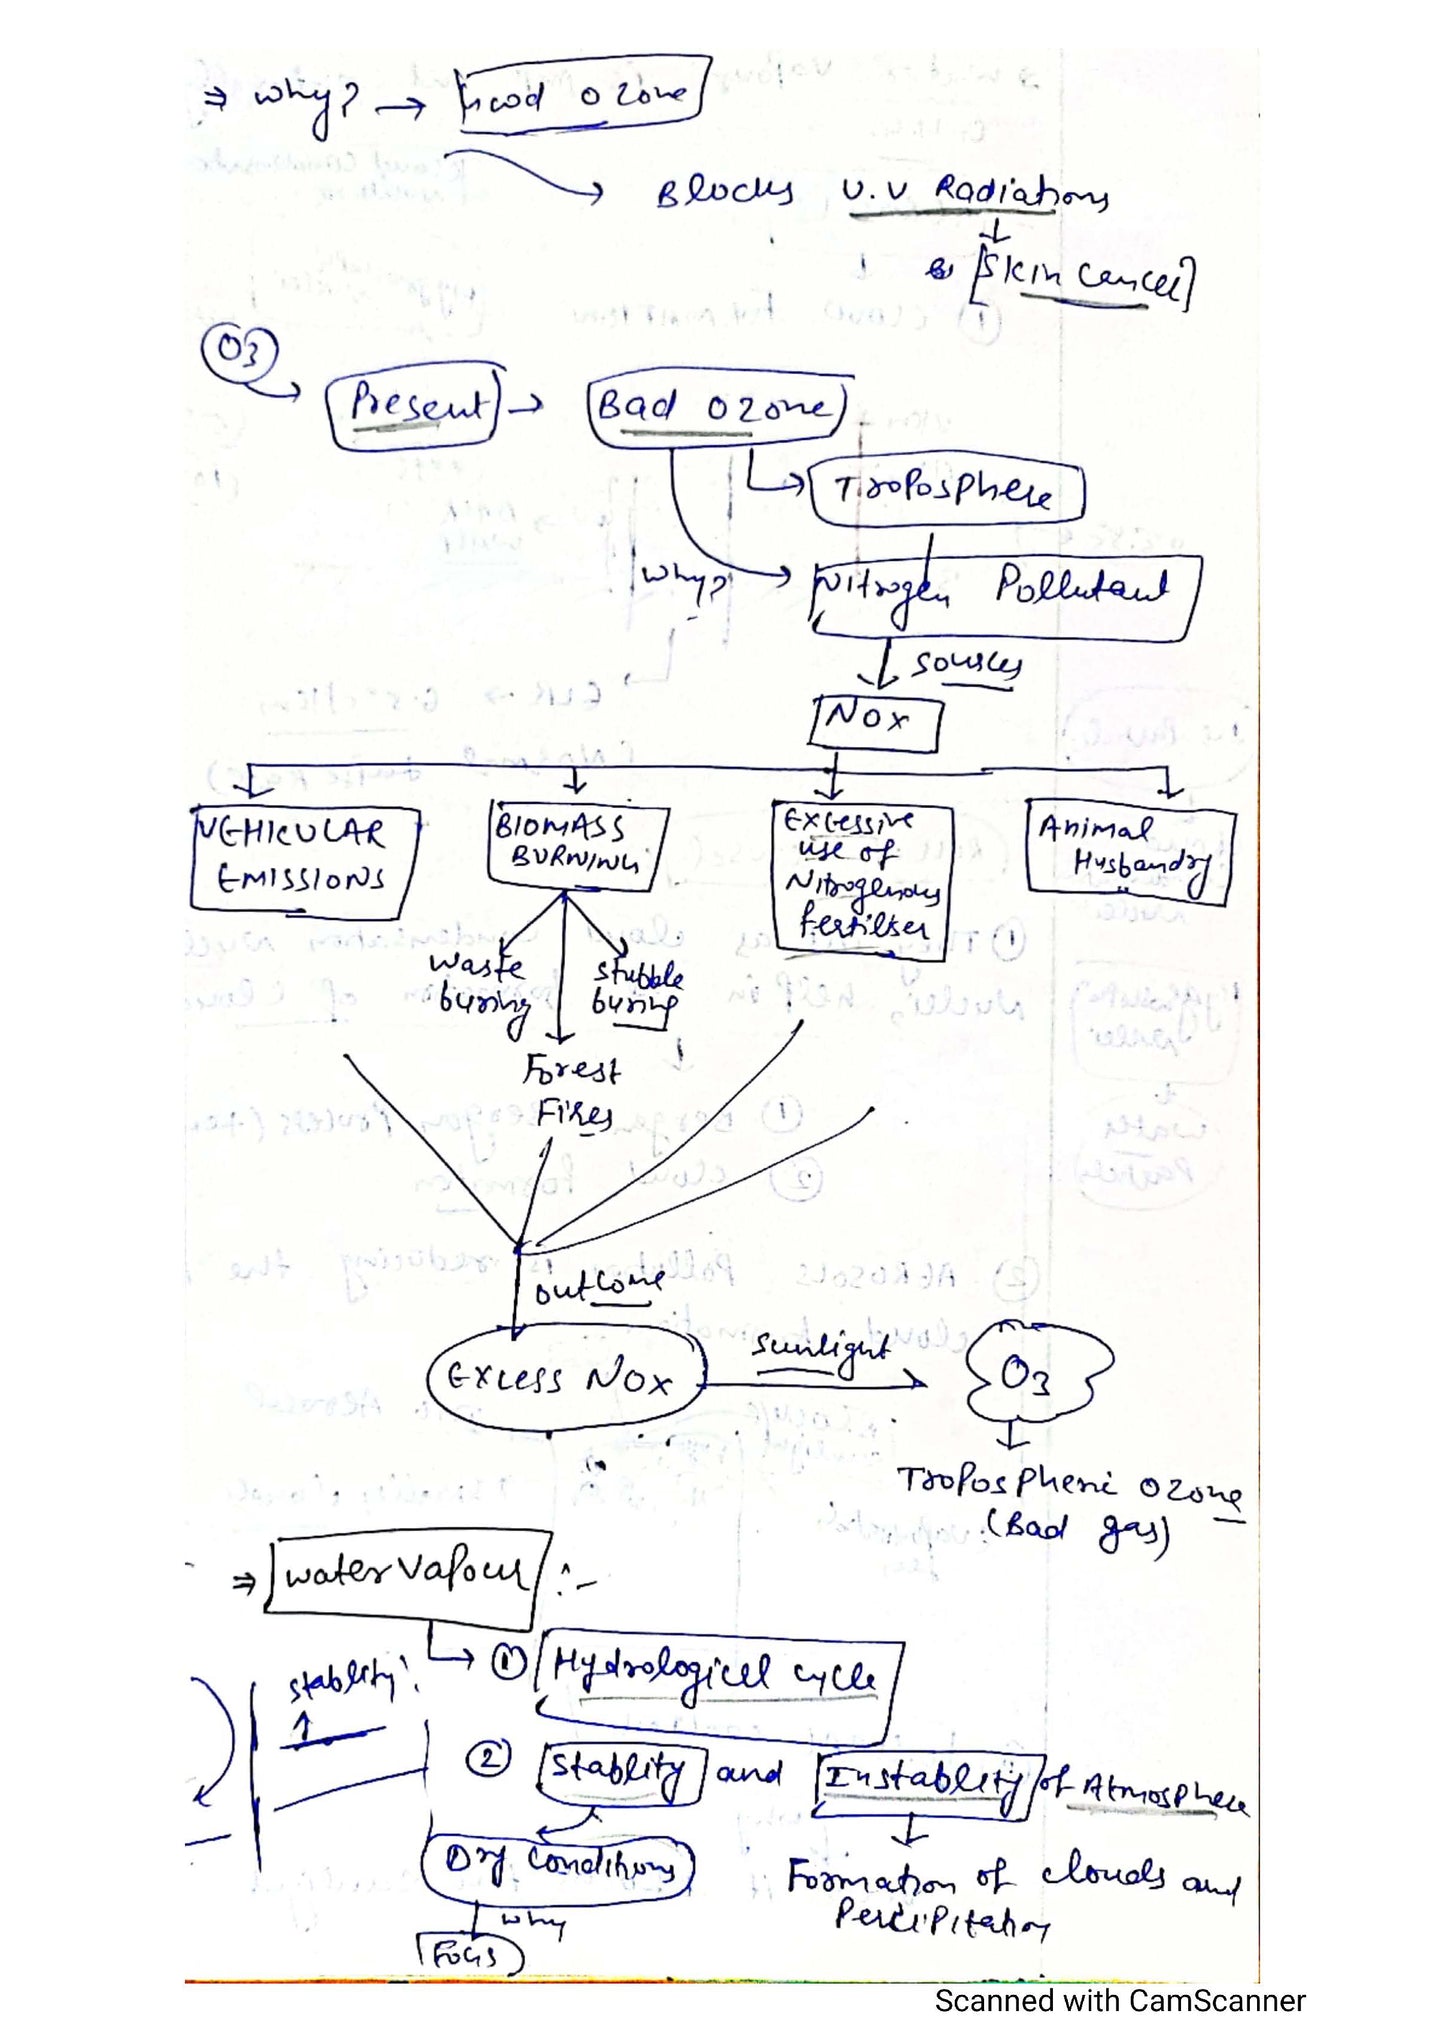 ⇒ why? → Good Ozone
→ Blocks U.V Radiations
↓
[Skin Cancer]
O3
→ Present → Bad Ozone
→ Troposphere
why? → Nitrogen Pollutant
↓ Sources
NOx
VEHICULAR
EMISSIONS
BIOMASS
BURNING
EXCESSIVE
use of
Nitrogenous
fertilser
Animal
Husbandry
Waste
buring
Stubble
buring
Forest
Fires
outcome
EXCESS NOx
sunlight
O3
Tropospheric Ozone
(Bad gas)
⇒ water Vapour :-
→ ① Hydrological cycle
stablity:
↑
② Stablity and Instablity of Atmosphere
Dry Conditions
Formation of clouds and
Percipitation
why
FOGS
Scanned with CamScanner